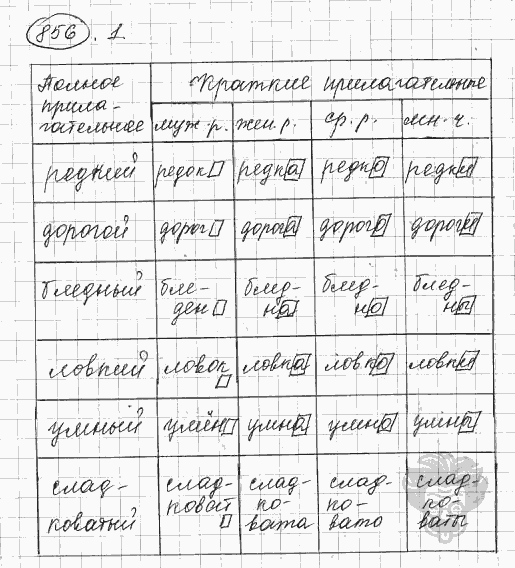 856. 1.
Полное прила-гательное | Краткие прилагательные
муж.р. | жен.р. | ср.р. | мн.ч.
редкий | редок | редка | редко | редки
дорогой | дорог | дорога | дорого | дороги
бледный | бле-ден | блед-на | блед-но | блед-ны
ловкий | ловок | ловка | ловко | ловки
умный | умён | умна | умно | умны
слад-коватый | слад-коват | слад-ко-вата | слад-ко-вато | слад-ко-ваты